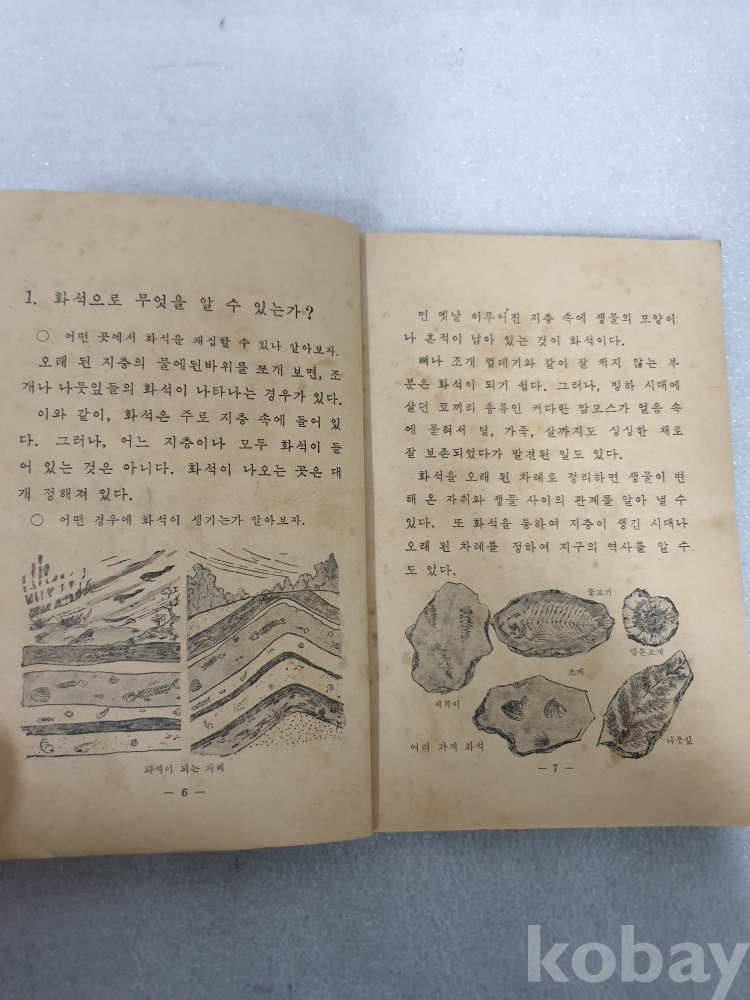 1. 화석으로 무엇을 알 수 있는가?
○ 어떤 곳에서 화석을 채집할 수 있나 알아보자.
오래 된 지층의 물에된바위를 쪼개 보면, 조
개나 나뭇잎들의 화석이 나타나는 경우가 있다.
이와 같이, 화석은 주로 지층 속에 들어 있
다. 그러나, 어느 지층이나 모두 화석이 들
어 있는 것은 아니다. 화석이 나오는 곳은 대
개 정해져 있다.
○ 어떤 경우에 화석이 생기는가 알아보자.
화석이 되는 차례
— 6 —
먼 옛날 이루어진 지층 속에 생물의 모양이
나 흔적이 남아 있는 것이 화석이다.
뼈나 조개 껍데기와 같이 잘 썩지 않는 부
분은 화석이 되기 쉽다. 그러나, 빙하 시대에
살던 코끼리 종류인 커다란 맘모스가 얼음 속
에 묻혀서 털, 가죽, 살까지도 싱싱한 채로
잘 보존되었다가 발견된 일도 있다.
화석을 오래 된 차례로 정리하면 생물이 변
해 온 자취와 생물 사이의 관계를 알아 낼 수
있다. 또 화석을 통하여 지층이 생긴 시대나
오래 된 차례를 정하여 지구의 역사를 알 수
도 있다.
물고기
암몬조개
조개
세쪽이
나뭇잎
여러 가지 화석
— 7 —
kobay